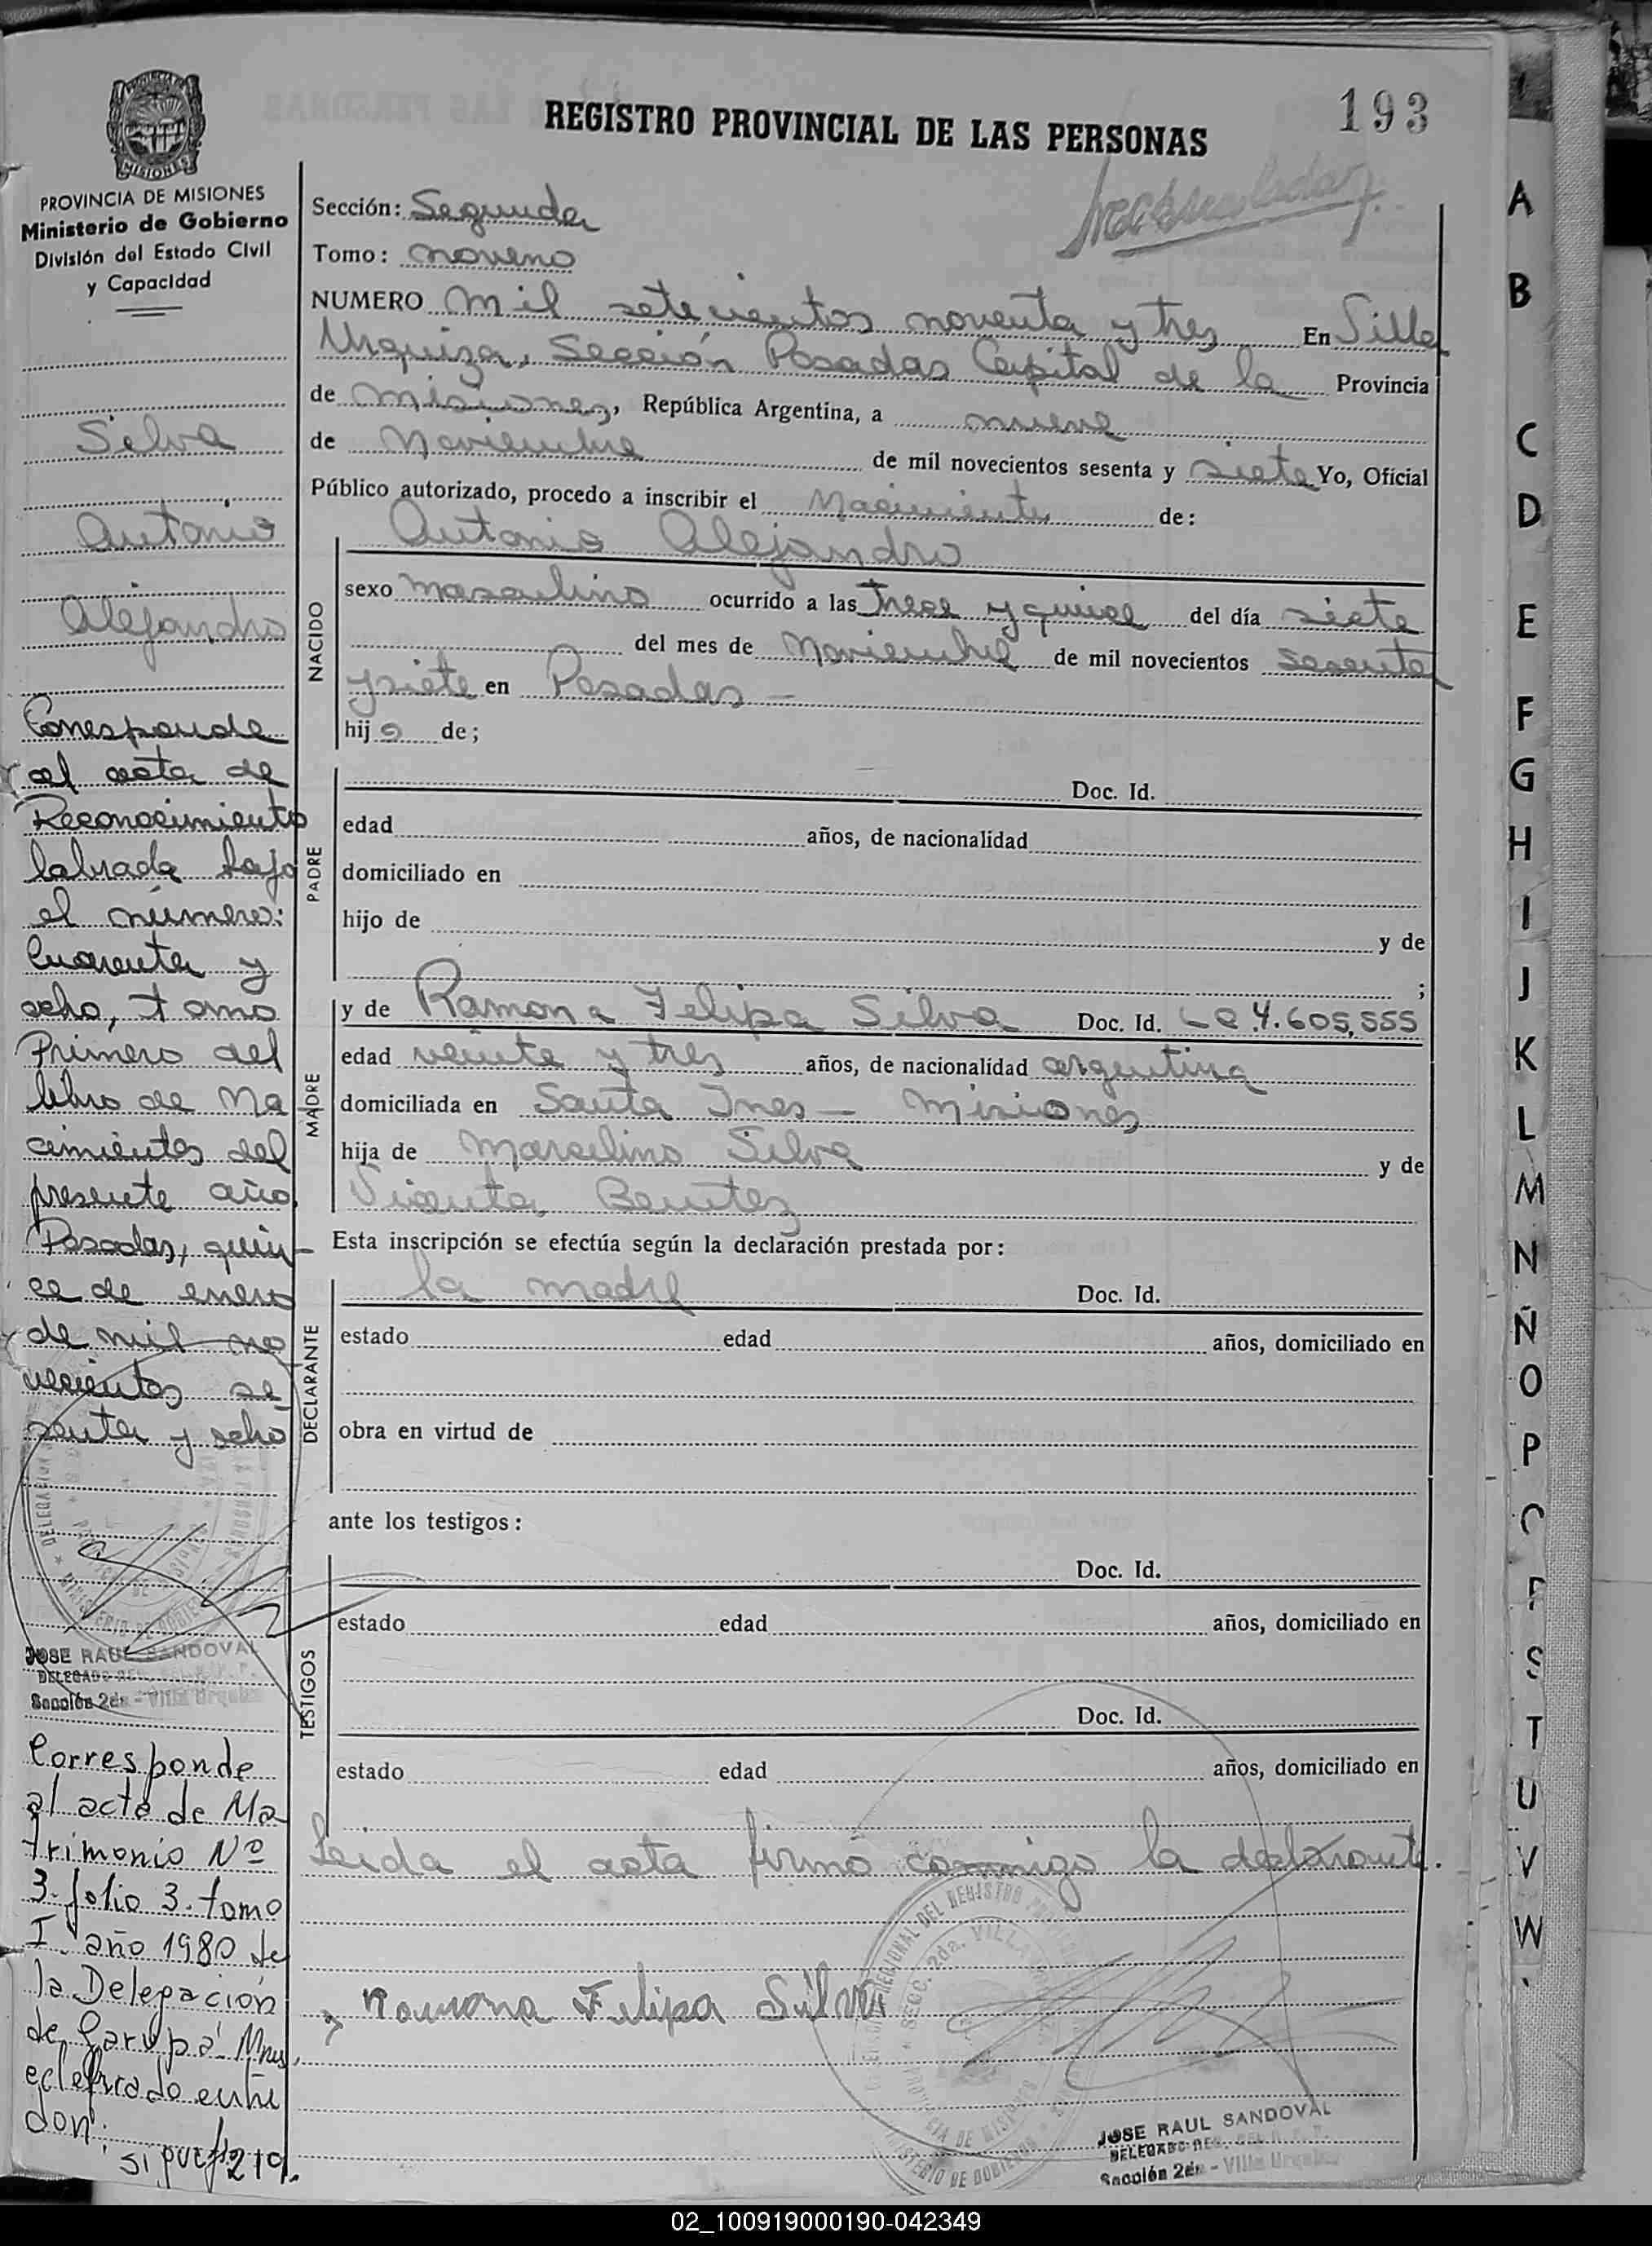 193
REGISTRO PROVINCIAL DE LAS PERSONAS
PROVINCIA DE MISIONES
Ministerio de Gobierno
División del Estado Civil
y Capacidad
Silva
Antonio
Alejandro
Corresponde
al acta de
Reconocimiento
labrada bajo
el número:
Cuarenta y
ocho, tomo
Primero del
libro de Na
cimientos del
presente año.
Posadas, quin-
ce de enero
de mil no
vecientos se
senta y ocho
JOSE RAUL SANDOVAL
DELEGADO REG.
Sección 2da - Villa Urquiza
Corresponde
al acta de Ma
trimonio Nº
3. folio 3. tomo
I. año 1980 de
la Delegación
de Garupá Mnes,
Sección: Segunda
Tomo: noveno
NUMERO Mil setecientos noventa y tres En Villa
Urquiza, Sección Posadas Capital de la Provincia
de Misiones, República Argentina, a nueve
de Noviembre de mil novecientos sesenta y siete Yo, Oficial
Público autorizado, procedo a inscribir el Nacimiento de:
Antonio Alejandro
NACIDO
sexo masculino ocurrido a las Trece y quince del día siete
del mes de Noviembre de mil novecientos sesenta
y siete en Posadas -
hijo de;
PADRE
Doc. Id.
edad años, de nacionalidad
domiciliado en
hijo de y de
;
MADRE
y de Ramona Felipa Silva Doc. Id. LC 4.605.555
edad veinte y tres años, de nacionalidad argentina
domiciliada en Santa Ines - Misiones
hija de Marcelino Silva y de
Vicenta Benitez
Esta inscripción se efectúa según la declaración prestada por:
DECLARANTE
la madre Doc. Id.
estado edad años, domiciliado en
obra en virtud de
ante los testigos:
TESTIGOS
Doc. Id.
estado edad años, domiciliado en
Doc. Id.
estado edad años, domiciliado en
Leida el acta firmó conmigo la declarante.
Ramona Felipa Silva
JOSE RAUL SANDOVAL
DELEGADO REG. DEL R. P. P.
Sección 2da - Villa Urquiza
A
B
C
D
E
F
G
H
I
J
K
L
M
N
Ñ
O
P
Q
R
S
T
U
V
W
02_100919000190-042349